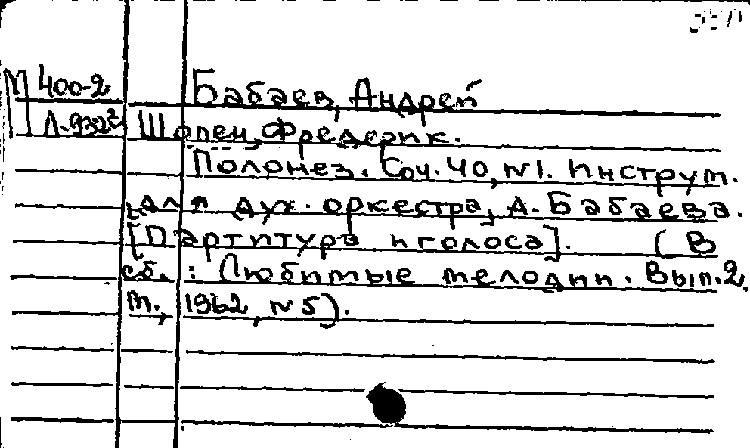 М 400-2 Бабаев, Андрей
Л-932² Шопен, Фредерик.
Полонез. Соч. 40, №1. Инструм.
для дух. оркестра, А. Бабаева.
[Партитура и голоса]. (В
сб.: Любимые мелодии. Вып. 2.
М., 1962, №5).